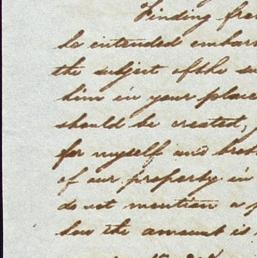 Finding
be intended
the subject of the
him in your place
should be created,
for myself and
of our property in
do not mention a
the amount is